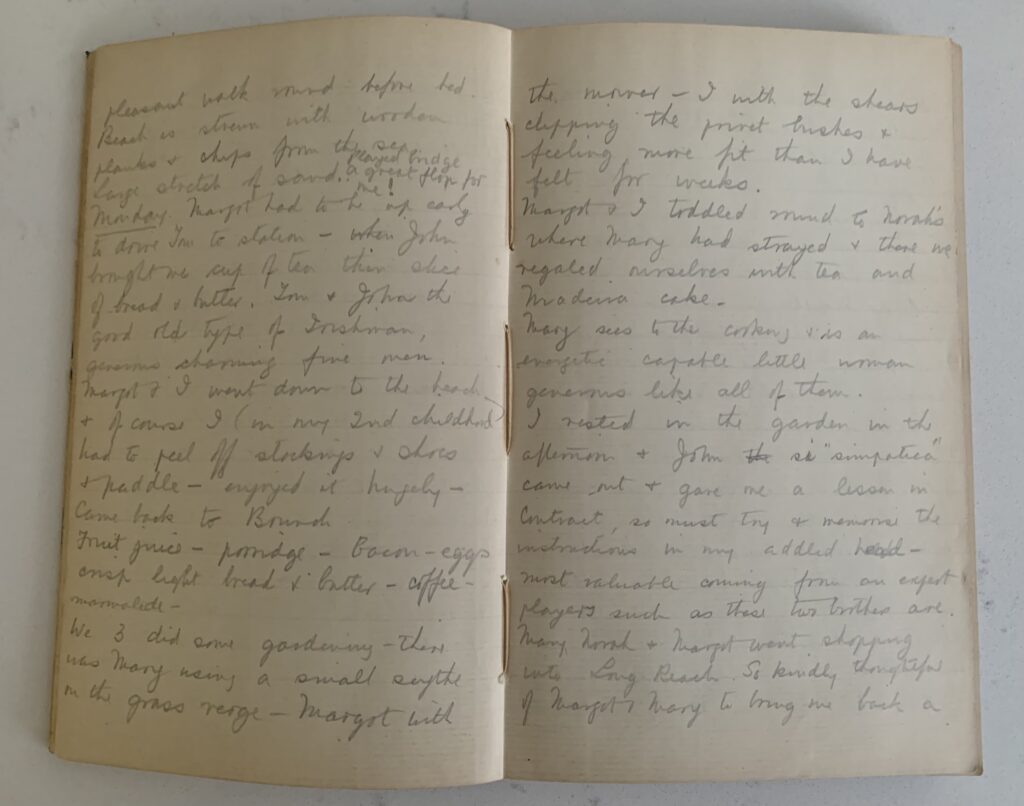 pleasant walk round before bed.
Beach is strewn with wooden
planks & chips from the sea
Large stretch of sand. played bridge
a great flop for
me!
Monday. Margot had to be up early
to drive Tom to station – when John
brought me cup of tea thin slice
of bread & butter. Tom & John the
good old type of Irishman,
generous charming fine men.
Margot & I went down to the beach
& of course I (in my 2nd childhood)
had to peel off stockings & shoes
& paddle – enjoyed it hugely –
Came back to
Fruit juice – porridge – Bacon – eggs
crisp light bread & butter – coffee –
marmalade –
We 3 did some gardening – there
was Mary using a small scythe
on the grass verge – Margot with
the mower – I with the shears
clipping the privet bushes &
feeling more fit than I have
felt for weeks.
Margot & I toddled round to Norah's
where Mary had strayed & there we
regaled ourselves with tea and
Madeira cake –
Mary sees to the cooking & is an
energetic capable little woman
generous like all of them.
I rested in the garden in the
afternoon & John the si "simpatica"
came out & gave me a lesson in
Contract, so must try & memorise the
instructions in my addled head –
most valuable coming from an expert
players such as these two brothers are.
Mary, Norah & Margot went shopping
into Long Beach. So kindly thoughtful
of Margot & Mary to bring me back a